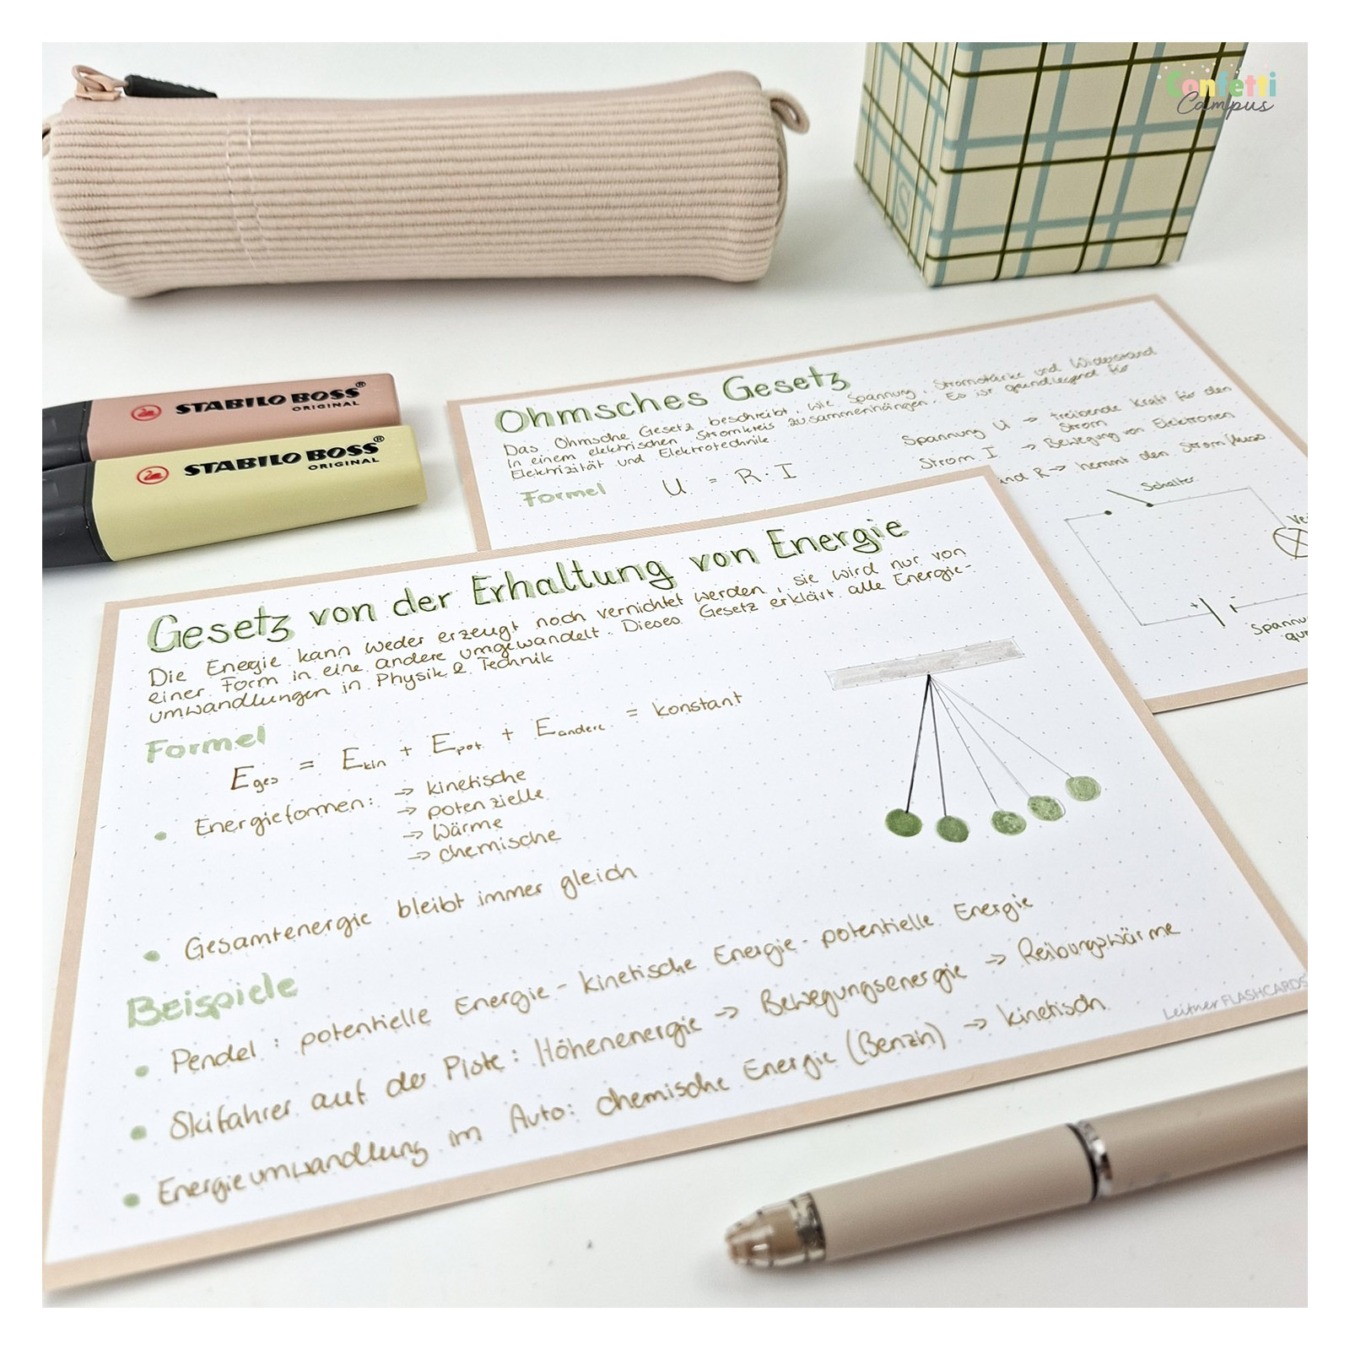 Confetti
Campus
STABILO BOSS®
ORIGINAL
STABILO BOSS®
ORIGINAL
Ohmsches Gesetz
Das Ohmsche Gesetz beschreibt, wie Spannung, Stromstärke und Widerstand
in einem elektrischen Stromkreis zusammenhängen. Es ist grundlegend für
Elektrizität und Elektrotechnik
Formel U = R · I
Spannung U → treibende Kraft für den
Strom
Strom I → Bewegung von Elektronen
and R → hemmt den Stromfluss
Schalter
Ve
+
Spannu
qu
Gesetz von der Erhaltung von Energie
Die Energie kann weder erzeugt noch vernichtet werden, sie wird nur von
einer Form in eine andere umgewandelt. Dieses Gesetz erklärt alle Energie-
umwandlungen in Physik & Technik
Formel
Eges = Ekin + Epot + Eandere = konstant
• Energieformen: → kinetische
→ potenzielle
→ Wärme
→ chemische
• Gesamtenergie bleibt immer gleich
Beispiele
• Pendel: potentielle Energie - kinetische Energie - potentielle Energie
• Skifahrer auf der Piste: Höhenenergie → Bewegungsenergie → Reibungswärme
• Energieumwandlung im Auto: chemische Energie (Benzin) → kinetisch
Leitner FLASHCARDS